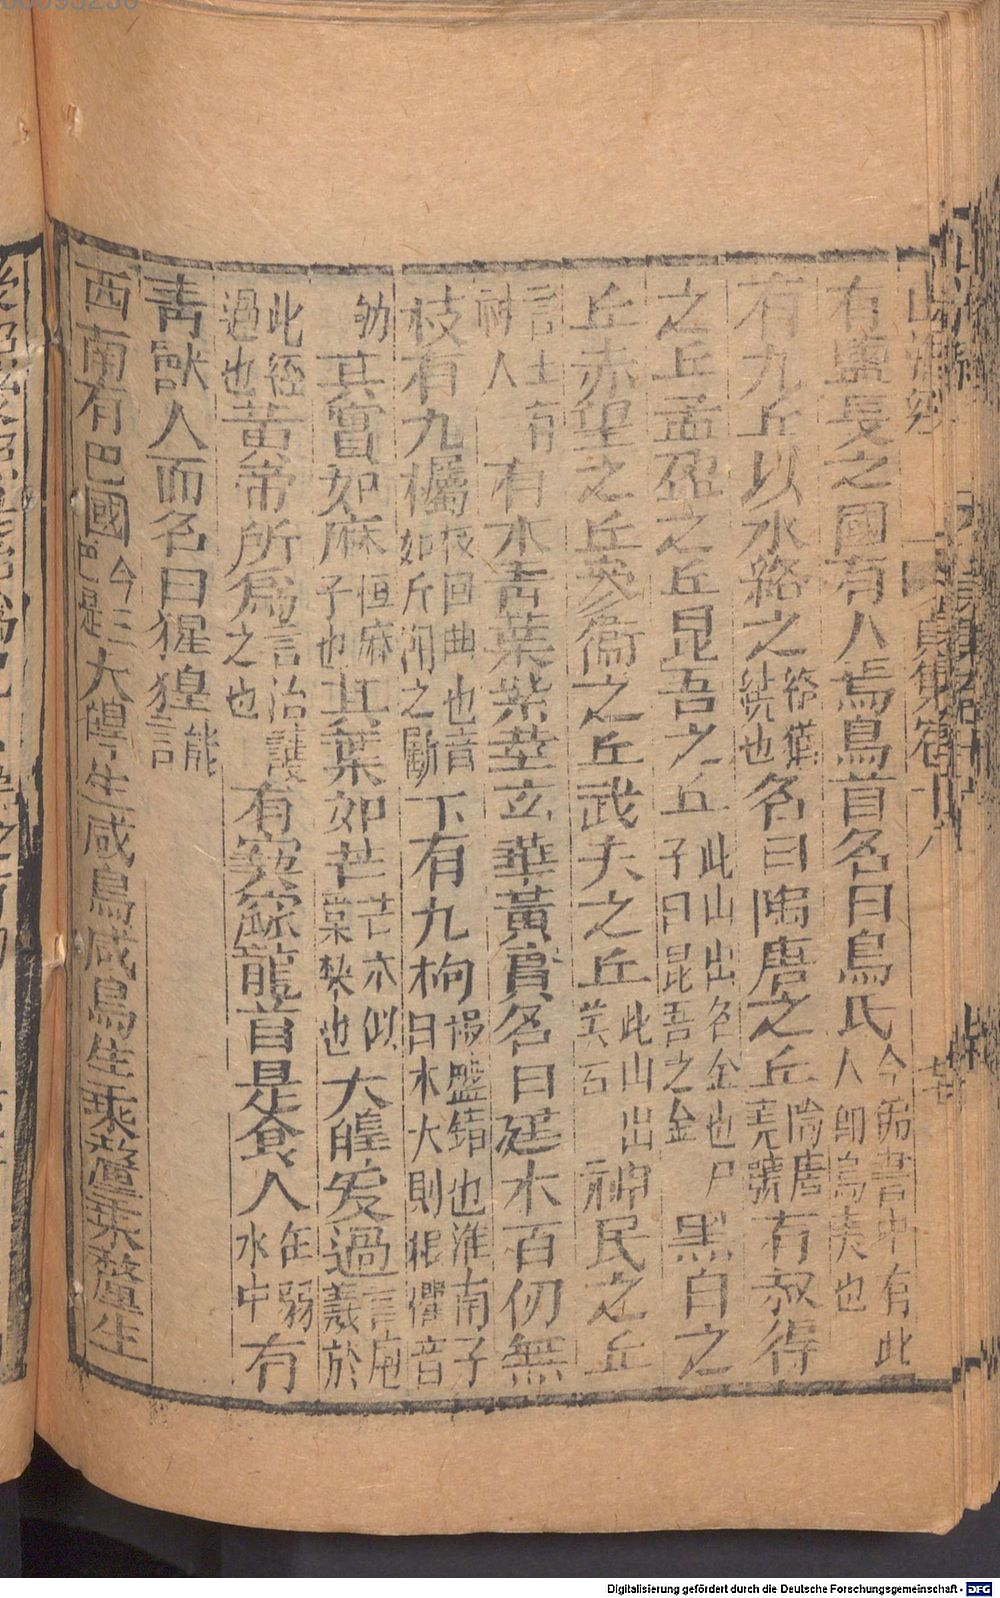 有鹽長之國有人焉鳥首名曰鳥氏今佛書中有此人即鳥夷也
有九丘以水絡之絡猶繞也名曰陶唐之丘陶唐堯號有叔得
之丘孟盈之丘昆吾之丘此山出名金也尸子曰昆吾之金黑白之
丘赤望之丘參衞之丘武夫之丘此山出美石神民之丘
言上有神人有木青葉紫莖玄華黃實名曰建木百仞無
枝有九欘枝回曲也音如斤斸之斸下有九枸根盤錯也淮南子曰木大則根欋音
劬其實如麻似麻子也其葉如芒芒木似棠棃也大皥爰過言庖羲於
此徑過也黃帝所爲言治護之也有窫窳龍首是食人在弱水中有
青獸人面名曰猩猩能言
西南有巴國今三巴是大皥生咸鳥咸鳥生乘釐乘釐生
Digitalisierung gefördert durch die Deutsche Forschungsgemeinschaft - DFG